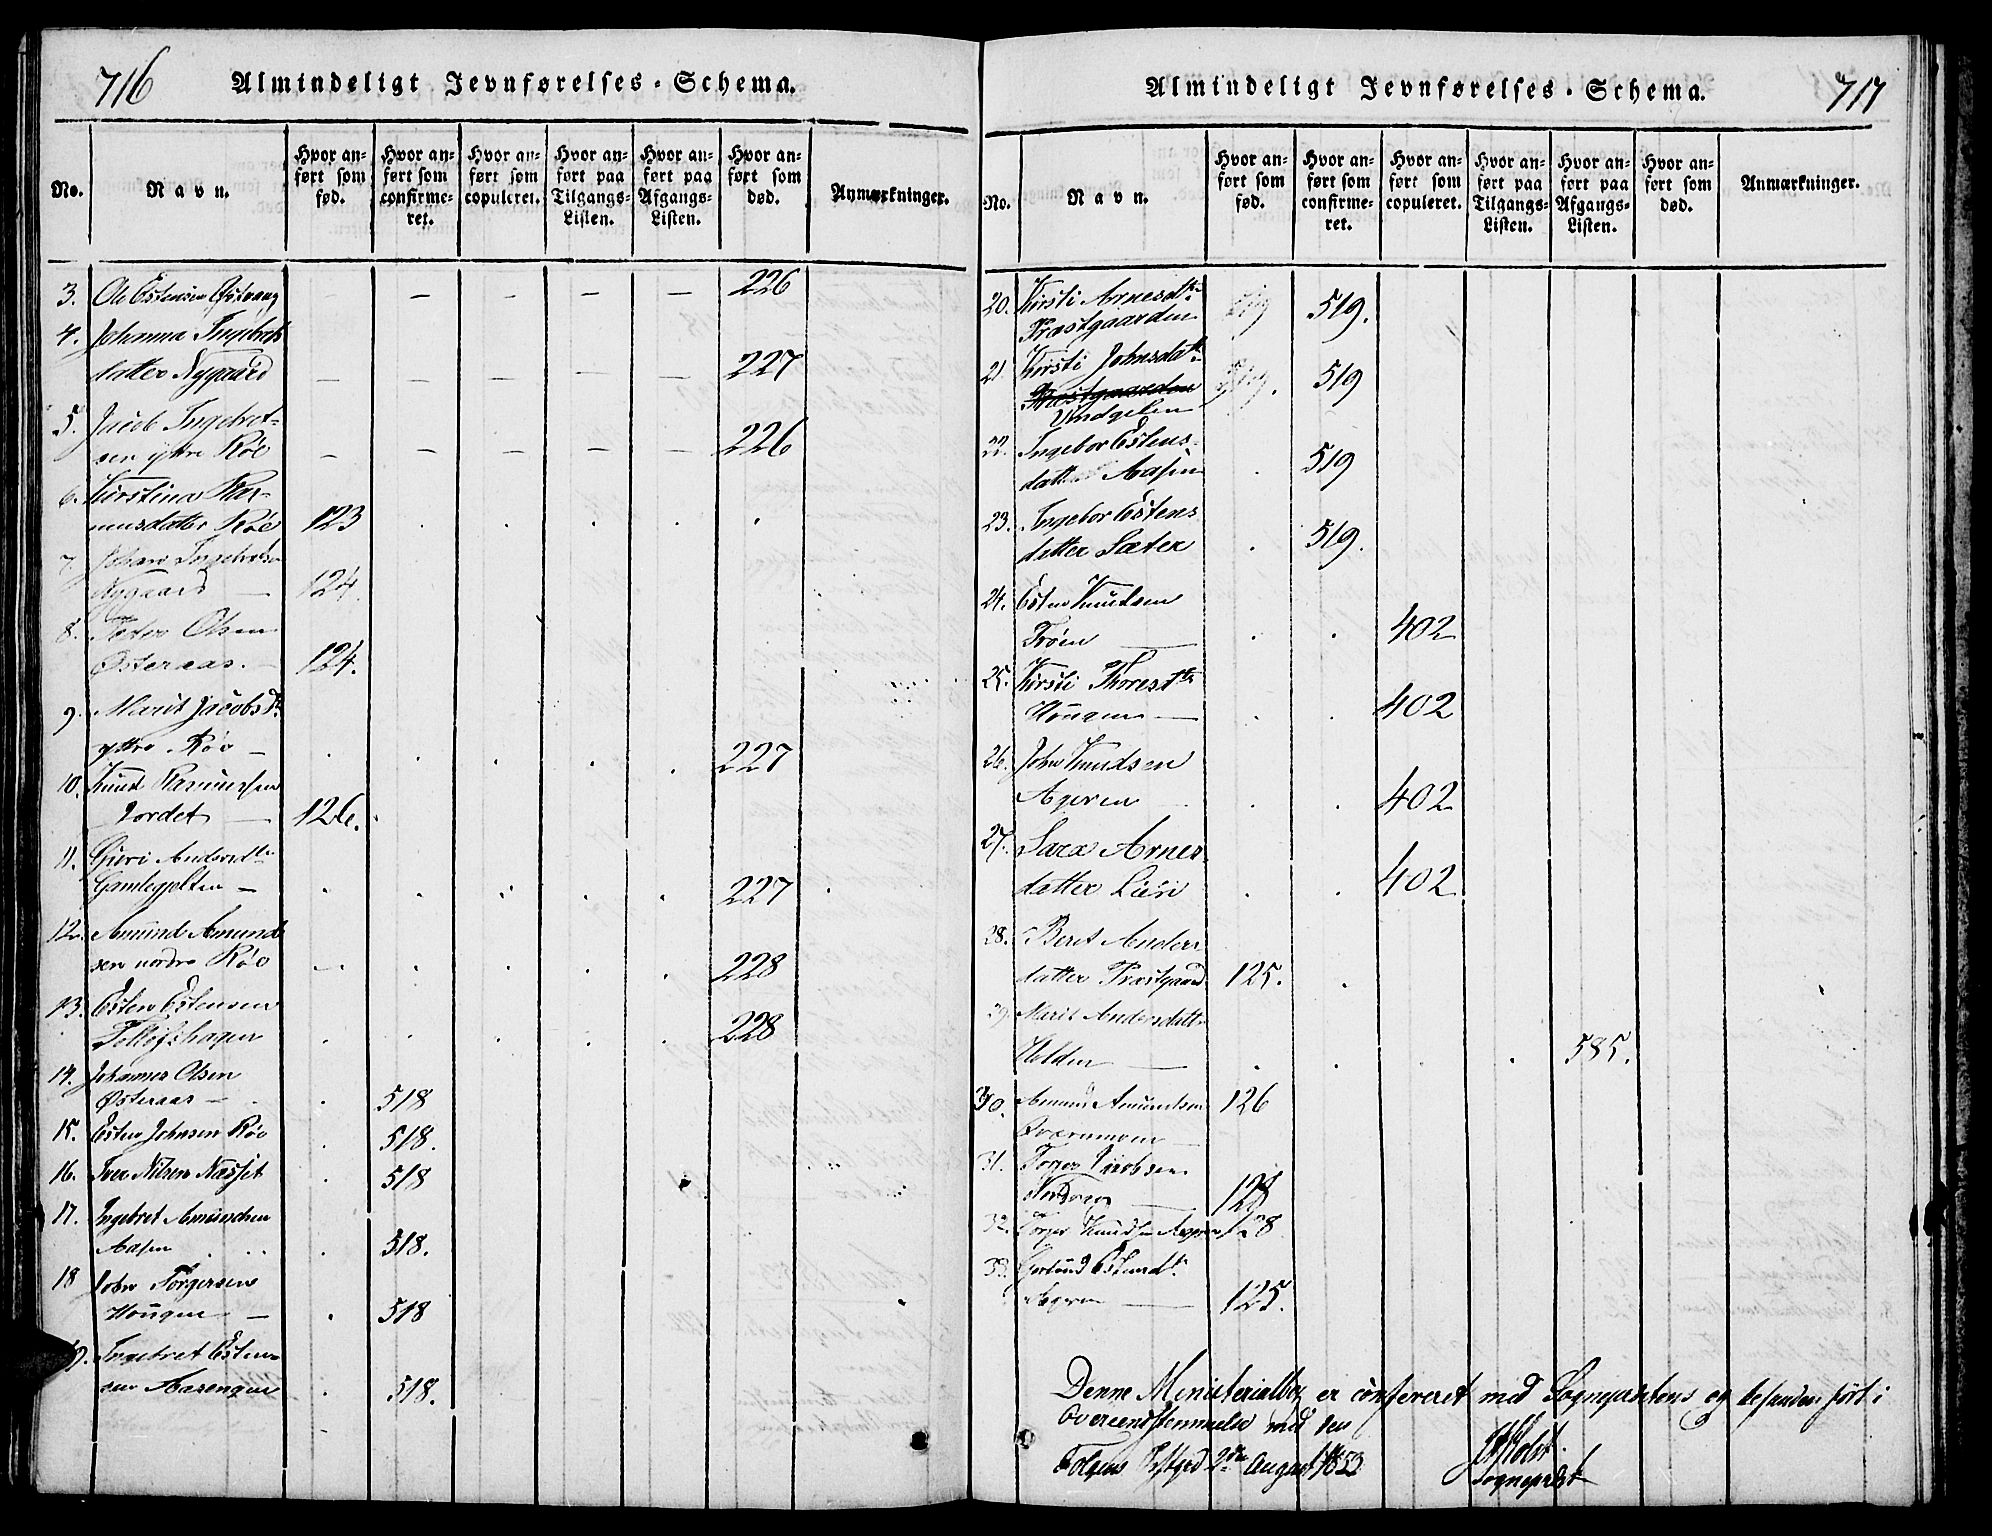 716
Almindeligt Jevnførelses-Schema.
No.
Navn.
Hvor an-
ført som
fød.
Hvor an-
ført som
confirme-
ret.
Hvor an-
ført som
copuleret.
Hvor an-
ført paa
Tilgangs-
Listen.
Hvor an-
ført paa
Afgangs-
Listen.
Hvor an-
ført som
død.
Anmærkninger.
3. Ole Estensen Østvang — — — — — 226
4. Johanna Ingebrets
datter Nygaard — — — — — 227
5. Jacob Ingebret-
sen yttre Røe — — — — — 226
6. Kirstina Ras-
musdatter Røe 123
7. Johan Ingebretsen
Nygaard — 124
8. Peter Olsen
Østeraas. — 124.
9. Marit Jacobsdtr
yttre Røe — 227
10. Knud Rasmussen
Jordet — 126.
11. Guri Andersdtr
Gamlegjelten — 227
12. Amund Amund
sen nordre Røe — 228
13. Esten Estensen
Tollefshagen 228
14. Johannes Olsen
Østeraas — 518
15. Esten Johnsen Røe 518.
16. Iver Nilsen Næsset 518
17. Ingebret Amundsen
Aasen 518.
18 John Torgersen
Hougen — 518
19. Ingebret Esten-
sen Aasengen 518.
717
Almindeligt Jevnførelses-Schema.
No.
Navn.
Hvor an-
ført som
fød.
Hvor an-
ført som
confirme-
ret.
Hvor an-
ført som
copuleret.
Hvor an-
ført paa
Tilgangs-
Listen.
Hvor an-
ført paa
Afgangs-
Listen.
Hvor an-
ført som
død.
Anmærkninger.
20. Kirsti Arnesdtr
Præstgaarden 519 519.
21. Kirsti Johnsdatr
Præstgaarden 519. 519
Vindgelen
22. Ingebor Estens
datter Aasen 519
23. Ingebor Estens
datter Sæter 519.
24. Esten Knudsen
Trøen — 402
25. Kirsti Thoresdtr
Hougen — 402
26. John Knudsen
Ageren 402
27. Sara Arnes
datter 402
28. Berit Anders
datter Præstgaard 125.
29. Marit Andersdatter
Helden — 585.
30. Amund Amundsen 126
Qvernmoen —
31. Torger Jacobsen
Nordren — 128
32. Torger Knudsen Ageren 128
33. Gertrud Estensdtr
Ageren — 125.
Denne Ministerialbog er confereret med Sognepræstens og befunden ført i
Overeensstemmelse med den
Tolgens Præstgrd 2den August 1853
Holst
Sognepræst